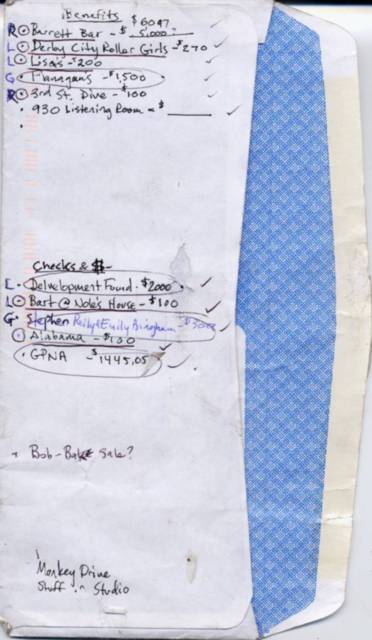 Benefits
$6047
R Barrett Bar - $5,000
L Derby City Roller Girls - $270
L Lisa's - $200
G Flanagan's - $1,500
R 3rd St. Dive - $100
• 930 Listening Room = $
•
Checks & $-
L • Delvelopment Found - $2000
L Bart @ Nole's House - $100
G • Stephen Reily & Emily Bingham -
Alabama - $100
• GPNA - $1445.05
Bob - Bake Sale?
Monkey Drive
Stuff in Studio